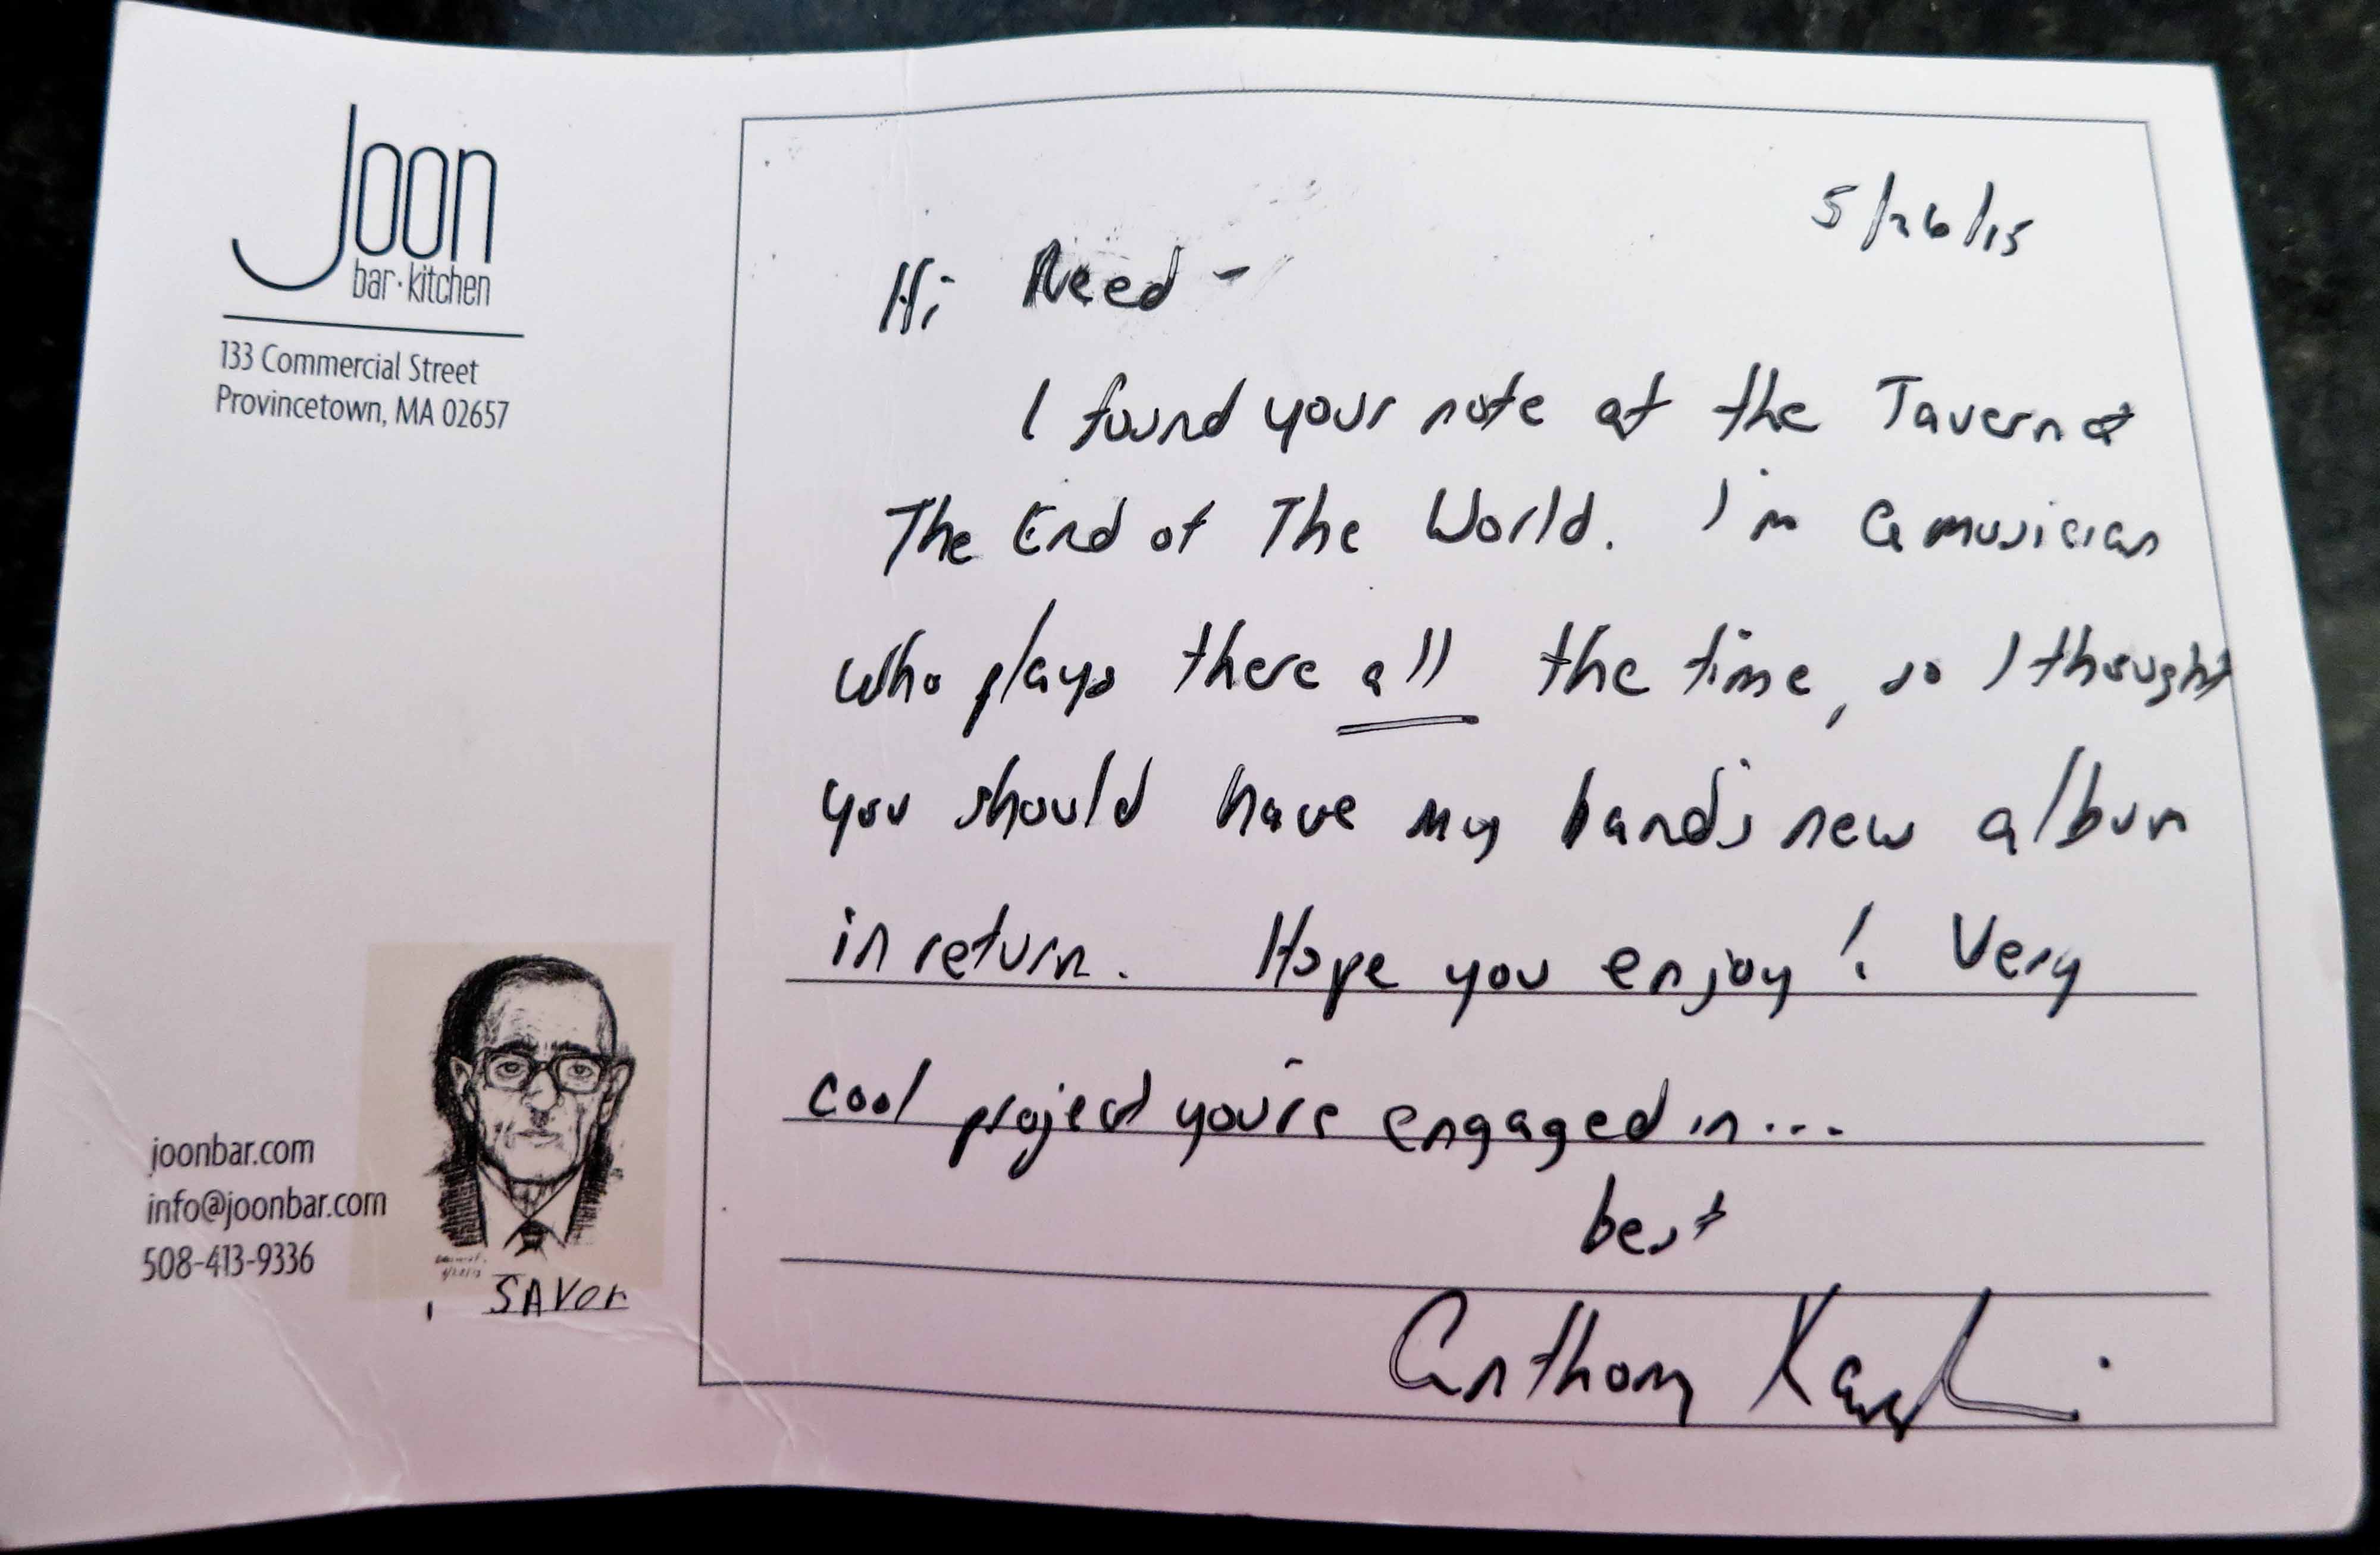 Joon
bar·kitchen
133 Commercial Street
Provincetown, MA 02657
5/26/15
Hi Reed -
I found your note at the Tavern at
The End of The World. I'm a musician
who plays there all the time, so I thought
you should have my band's new album
in return. Hope you enjoy! Very
cool project you're engaged in...
best
Anthony
joonbar.com
info@joonbar.com
508-413-9336
SAVOr